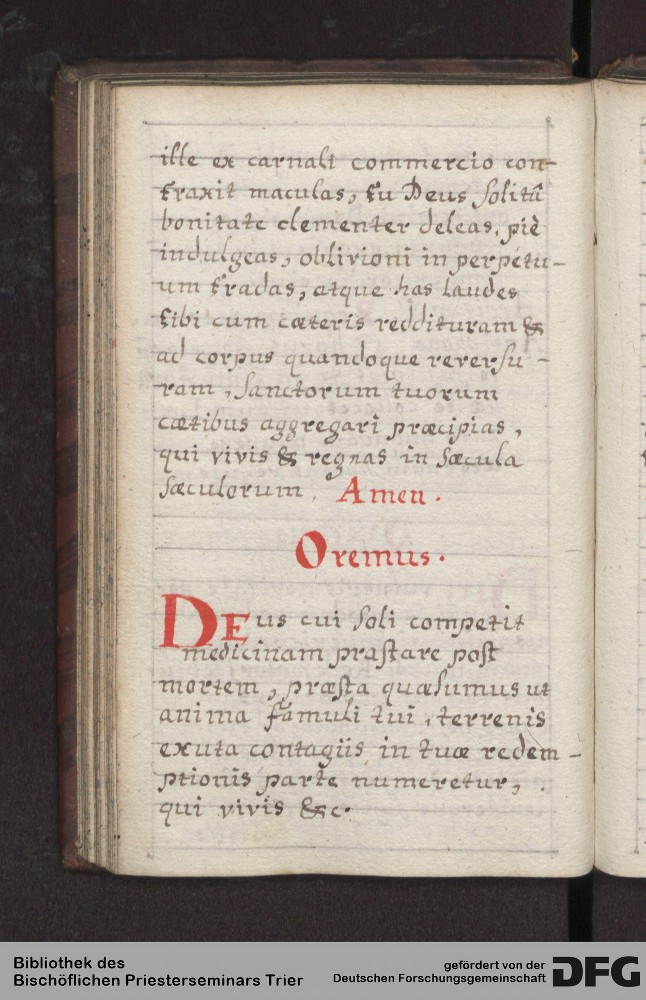 ille ex carnali commercio con-
traxit maculas, tu Deus solitâ
bonitate clementer deleas, piè
indulgeas, oblivioni in perpétu-
um tradas, atque has laudes
tibi cum cæteris reddituram &
ad corpus quandoque reversu-
ram, Sanctorum tuorum
cœtibus aggregari præcipias,
qui vivis & regnas in Sæcula
Sæculorum. Amen.
Oremus.
DEus cui soli competit
medicinam præstare post
mortem, præsta quæsumus ut
anima famuli tui, terrenis
exuta contagiis in tuæ redem-
ptionis parte numeretur,
qui vivis &c.
Bibliothek des
Bischöflichen Priesterseminars Trier
gefördert von der
Deutschen Forschungsgemeinschaft
DFG